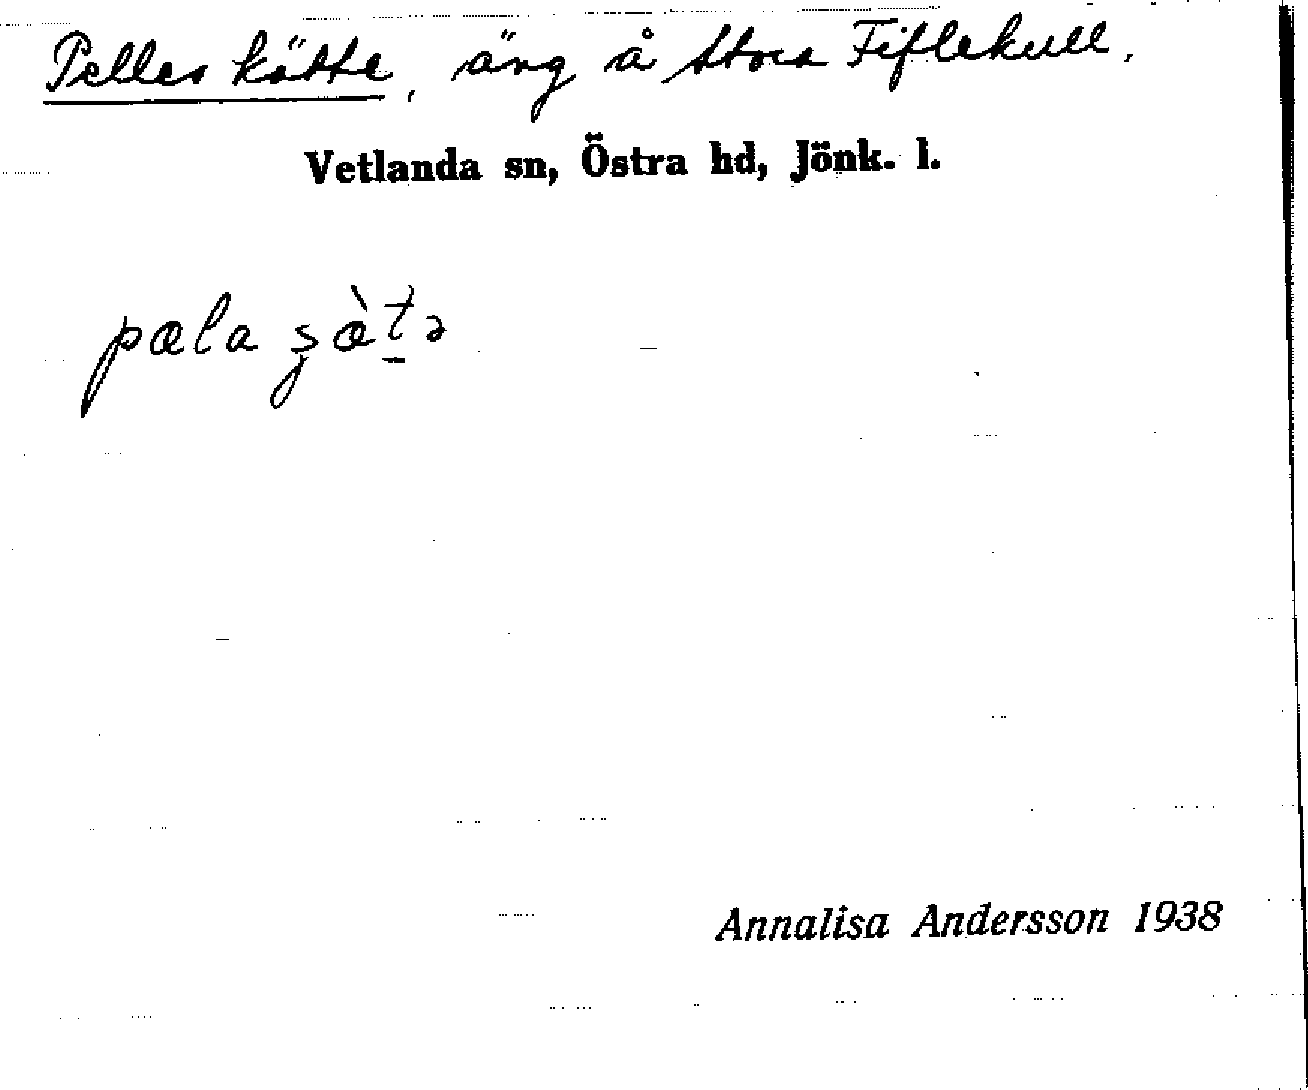 Pelles kätte, äng å Stora Fiflekull.
Vetlanda sn, Östra hd, Jönk. l.
Annalisa Andersson 1938